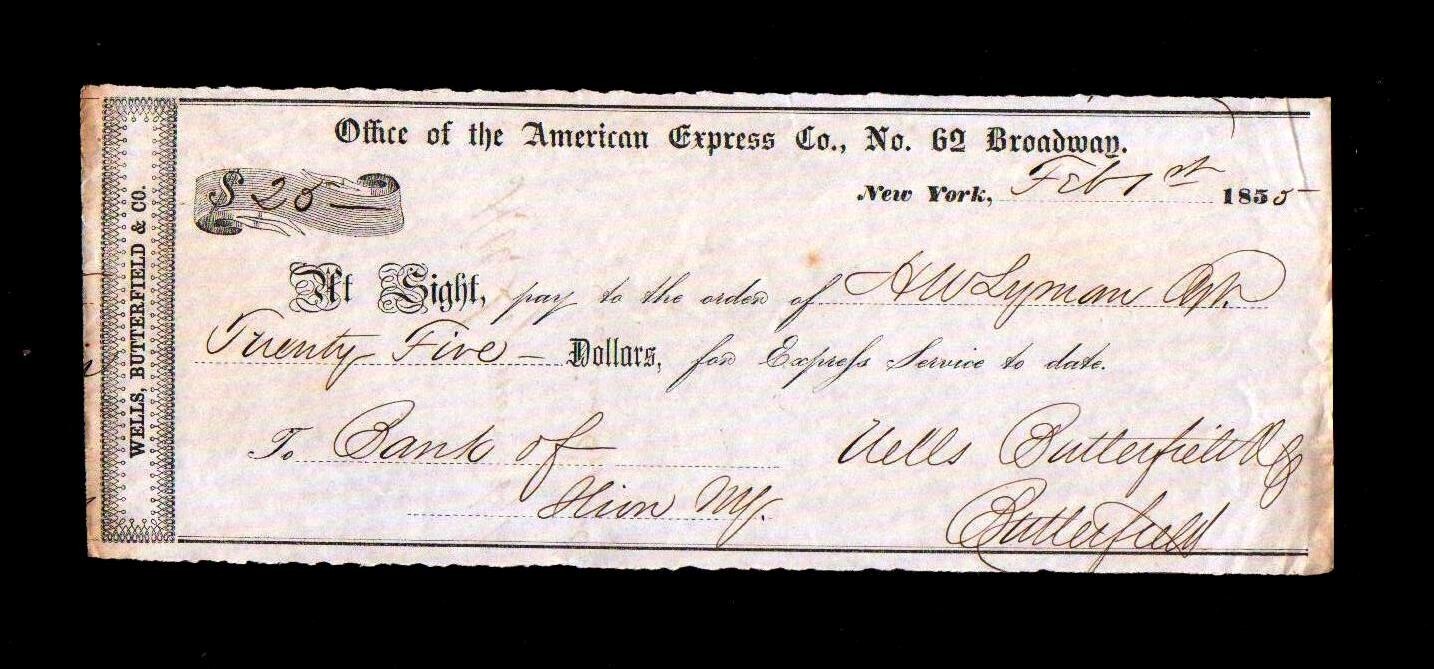 WELLS, BUTTERFIELD & CO.
Office of the American Express Co., No. 62 Broadway.
$ 25 —
New York, Feb 1st 1855
At Sight, pay to the order of A W Lyman Agt.
Twenty Five — Dollars, for Express Service to date.
To Bank of
Ilion NY.
Wells Butterfield & Co
Butterfield